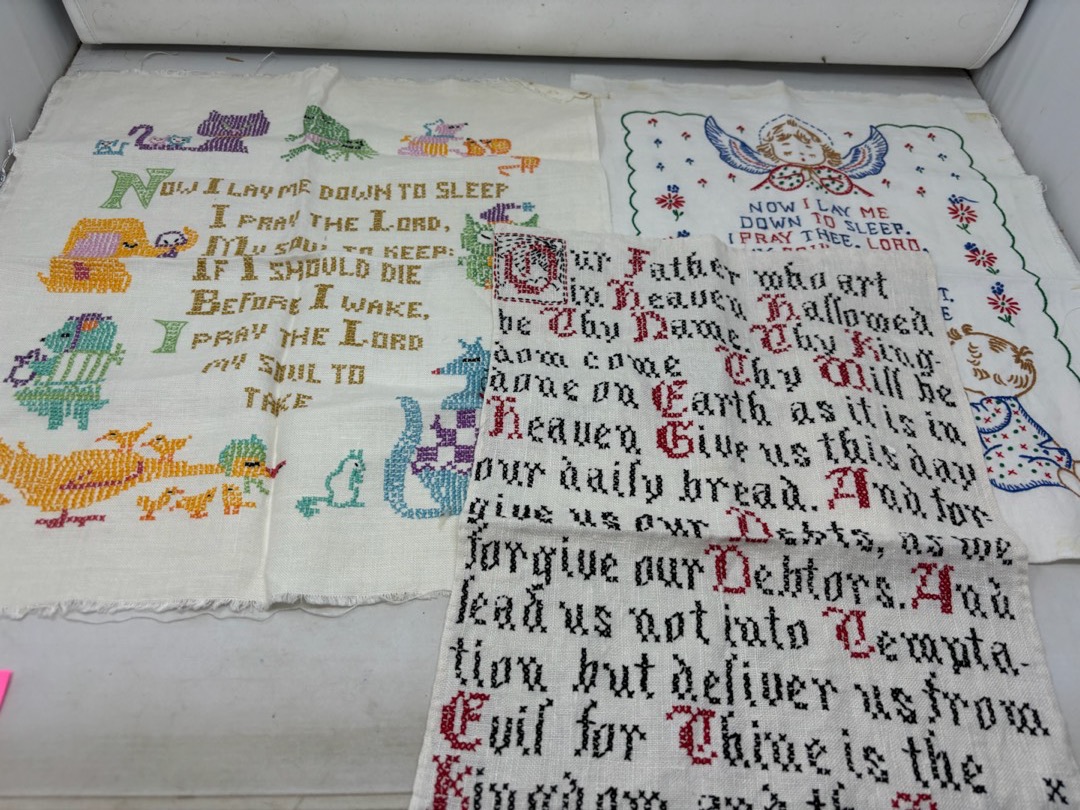 NOW I LAY ME DOWN TO SLEEP
I PRAY THE LORD,
MY SOUL TO KEEP:
IF I SHOULD DIE
BEFORE I WAKE,
I PRAY THE LORD
MY SOUL TO
TAKE
NOW I LAY ME
DOWN TO SLEEP.
I PRAY THEE. LORD.
Our Father who art
in Heaven Hallowed
be Thy Name. Thy King-
dom come Thy Will be
done on Earth as it is in
Heaven Give us this day
our daily bread. And for-
give us our Debts, as we
forgive our Debtors. And
lead us not into Tempta-
tion but deliver us from
Evil for Thine is the
Kingdom and the